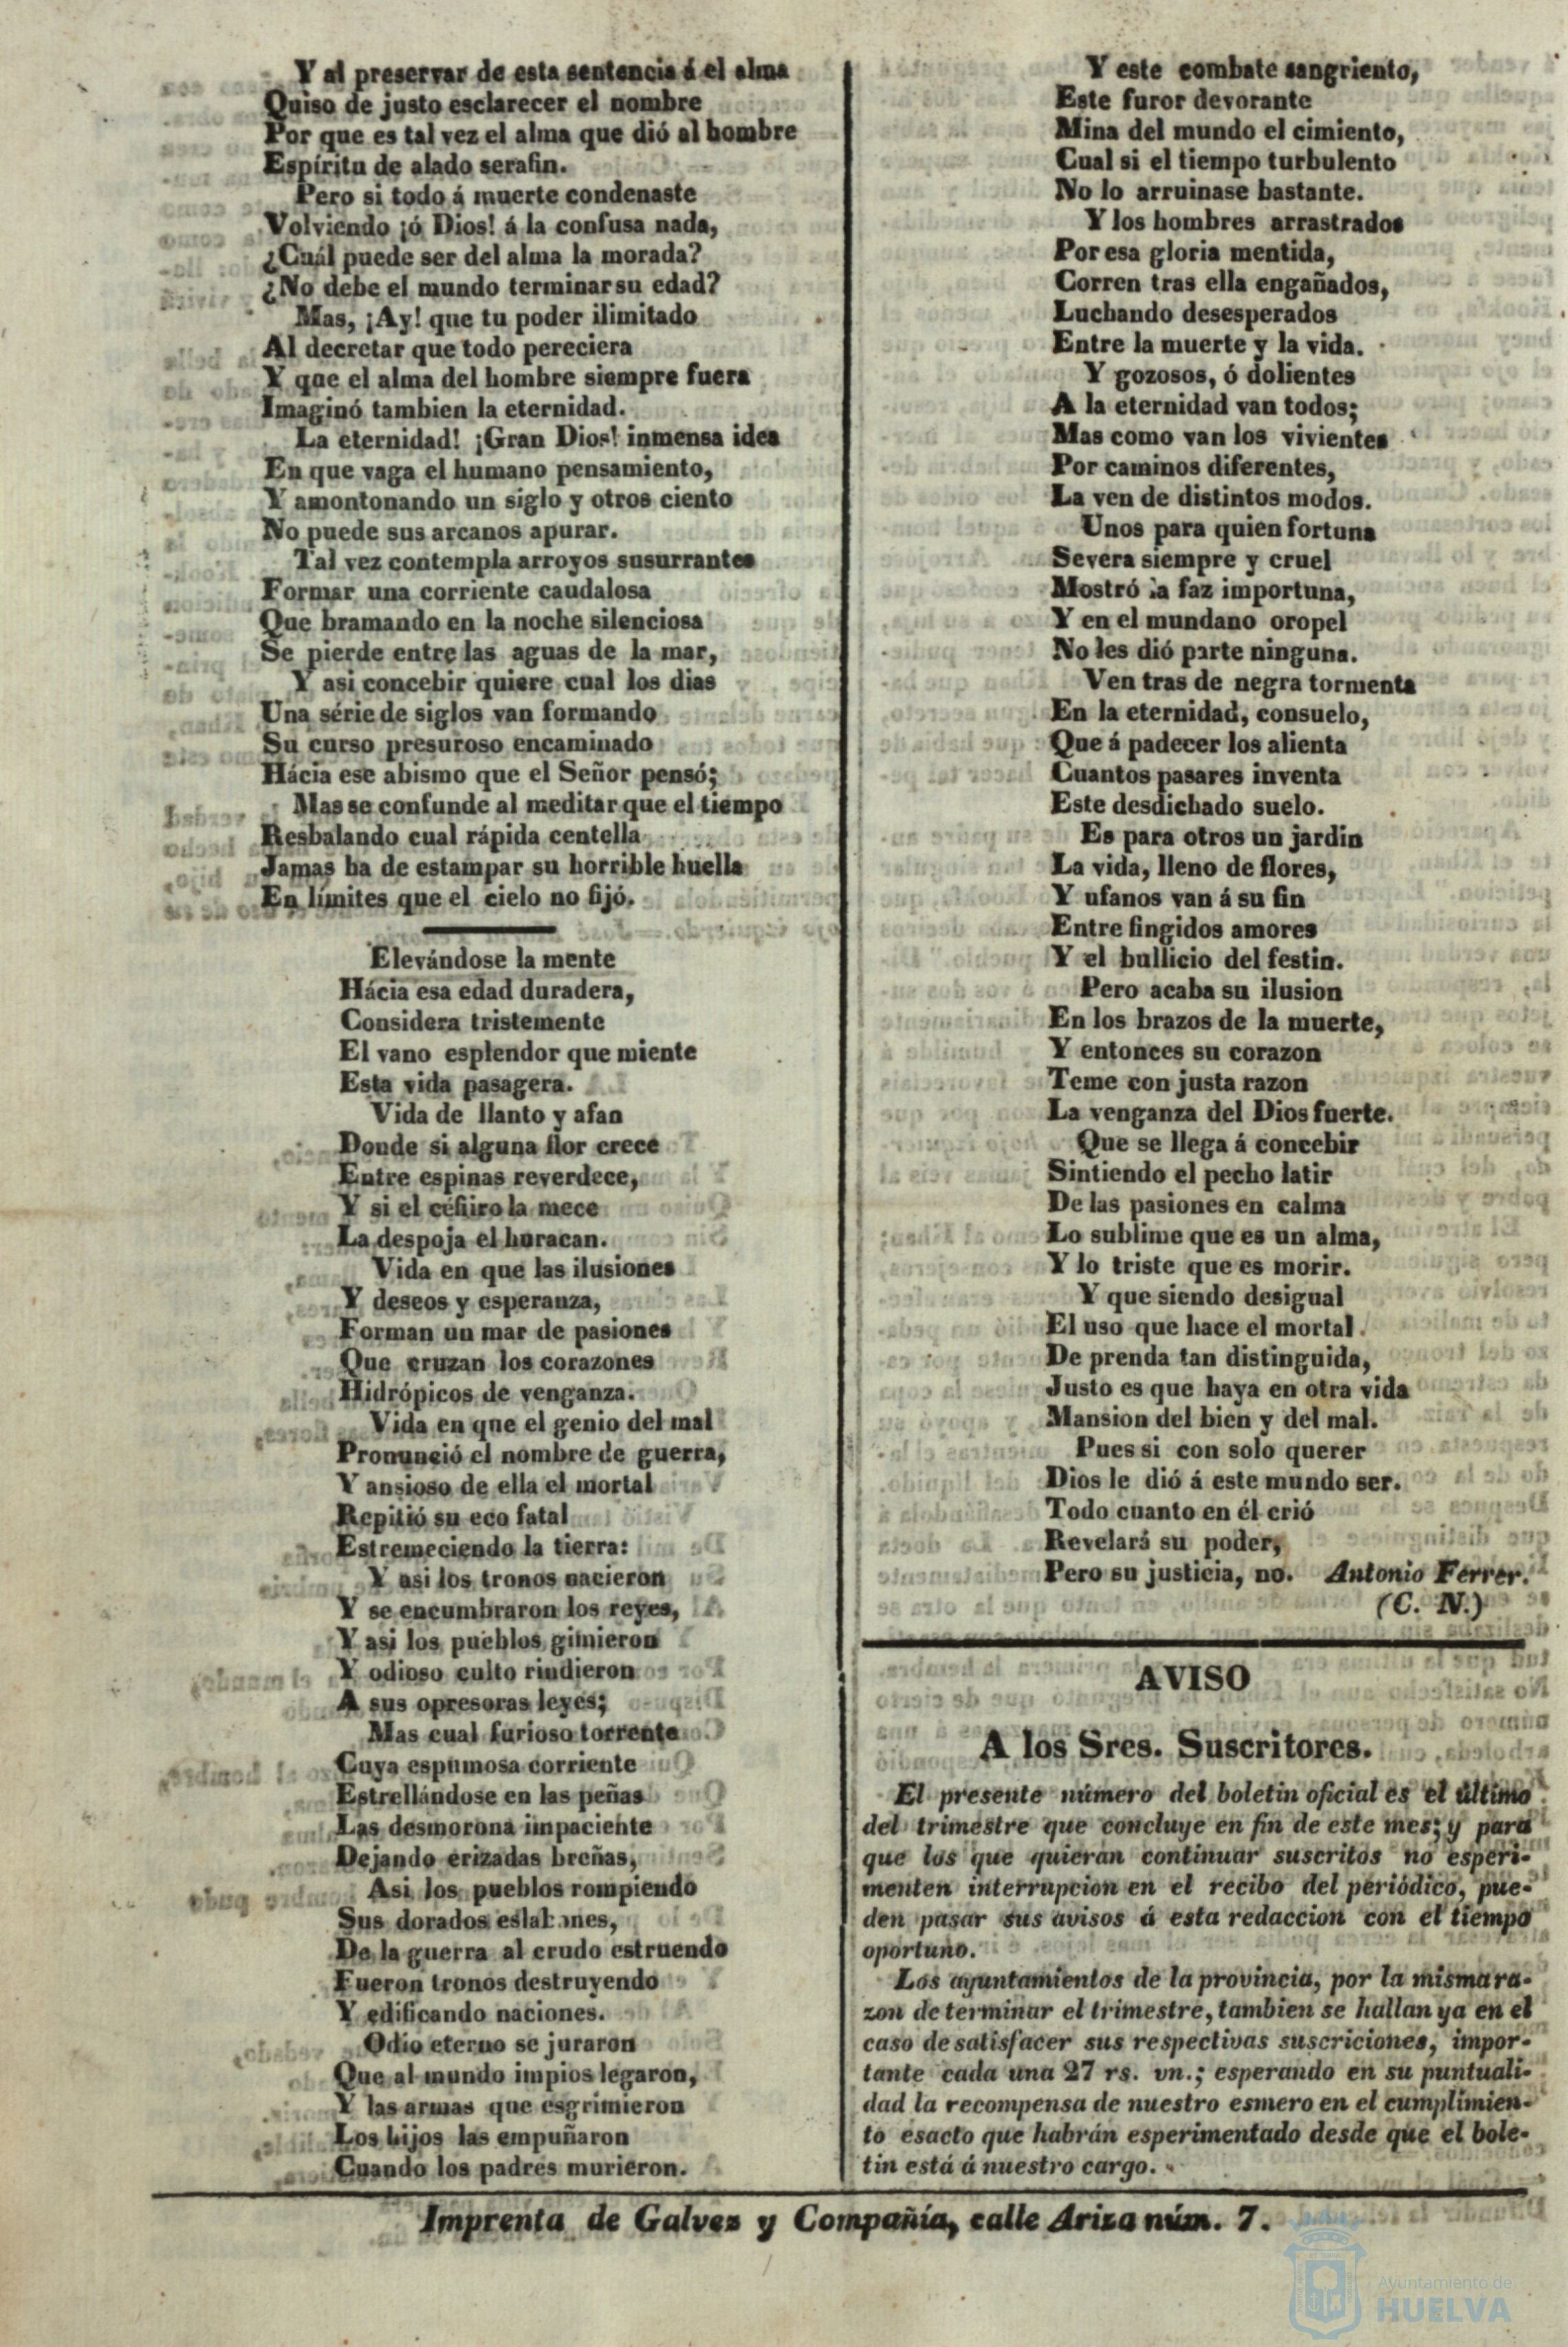 Y al preservar de esta sentencia á el alma
Quiso de justo esclarecer el nombre
Por que es tal vez el alma que dió al hombre
Espíritu de alado serafin.
Pero si todo á muerte condenaste
Volviendo ¡ó Dios! á la confusa nada,
¿Cuál puede ser del alma la morada?
¿No debe el mundo terminar su edad?
Mas, ¡Ay! que tu poder ilimitado
Al decretar que todo pereciera
Y que el alma del hombre siempre fuera
Imaginó tambien la eternidad.
La eternidad! ¡Gran Dios! inmensa idea
En que vaga el humano pensamiento,
Y amontonando un siglo y otros ciento
No puede sus arcanos apurar.
Tal vez contempla arroyos susurrantes
Formar una corriente caudalosa
Que bramando en la noche silenciosa
Se pierde entre las aguas de la mar,
Y asi concebir quiere cual los dias
Una série de siglos van formando
Su curso presuroso encaminado
Hácia ese abismo que el Señor pensó;
Mas se confunde al meditar que el tiempo
Resbalando cual rápida centella
Jamas ha de estampar su horrible huella
En límites que el cielo no fijó.
Elevándose la mente
Hácia esa edad duradera,
Considera tristemente
El vano esplendor que miente
Esta vida pasagera.
Vida de llanto y afan
Donde si alguna flor crece
Entre espinas reverdece,
Y si el céfiiro la mece
La despoja el huracan.
Vida en que las ilusiones
Y deseos y esperanza,
Forman un mar de pasiones
Que cruzan los corazones
Hidrópicos de venganza.
Vida en que el genio del mal
Pronunció el nombre de guerra,
Y ansioso de ella el mortal
Repitió su eco fatal
Estremeciendo la tierra:
Y asi los tronos nacieron
Y se encumbraron los reyes,
Y asi los pueblos gimieron
Y odioso culto rindieron
A sus opresoras leyes;
Mas cual furioso torrente
Cuya espumosa corriente
Estrellándose en las peñas
Las desmorona impaciente
Dejando erizadas breñas,
Asi los pueblos rompiendo
Sus dorados eslabones,
De la guerra al crudo estruendo
Fueron tronos destruyendo
Y edificando naciones.
Odio eterno se juraron
Que al mundo impios legaron,
Y las armas que esgrimieron
Los hijos las empuñaron
Cuando los padres murieron.
Y este combate sangriento,
Este furor devorante
Mina del mundo el cimiento,
Cual si el tiempo turbulento
No lo arruinase bastante.
Y los hombres arrastrados
Por esa gloria mentida,
Corren tras ella engañados,
Luchando desesperados
Entre la muerte y la vida.
Y gozosos, ó dolientes
A la eternidad van todos;
Mas como van los vivientes
Por caminos diferentes,
La ven de distintos modos.
Unos para quien fortuna
Severa siempre y cruel
Mostró la faz importuna,
Y en el mundano oropel
No les dió parte ninguna.
Ven tras de negra tormenta
En la eternidad, consuelo,
Que á padecer los alienta
Cuantos pasares inventa
Este desdichado suelo.
Es para otros un jardin
La vida, lleno de flores,
Y ufanos van á su fin
Entre fingidos amores
Y el bullicio del festin.
Pero acaba su ilusion
En los brazos de la muerte,
Y entonces su corazon
Teme con justa razon
La venganza del Dios fuerte.
Que se llega á concebir
Sintiendo el pecho latir
De las pasiones en calma
Lo sublime que es un alma,
Y lo triste que es morir.
Y que siendo desigual
El uso que hace el mortal
De prenda tan distinguida,
Justo es que haya en otra vida
Mansion del bien y del mal.
Pues si con solo querer
Dios le dió á este mundo ser.
Todo cuanto en él crió
Revelará su poder,
Pero su justicia, no. Antonio Ferrer.
(C. N.)
AVISO
A los Sres. Suscritores.
El presente número del boletin oficial es el último
del trimestre que concluye en fin de este mes; y para
que los que quieran continuar suscritos no esperi-
menten interrupcion en el recibo del periódico, pue-
den pasar sus avisos á esta redaccion con el tiempo
oportuno.
Los ayuntamientos de la provincia, por la misma ra-
zon de terminar el trimestre, tambien se hallan ya en el
caso de satisfacer sus respectivas suscriciones, impor-
tante cada una 27 rs. vn.; esperando en su puntuali-
dad la recompensa de nuestro esmero en el cumplimien-
to esacto que habrán esperimentado desde que el bole-
tin está á nuestro cargo.
Imprenta de Galvez y Compañía, calle Ariza núm. 7.
Ayuntamiento de
HUELVA